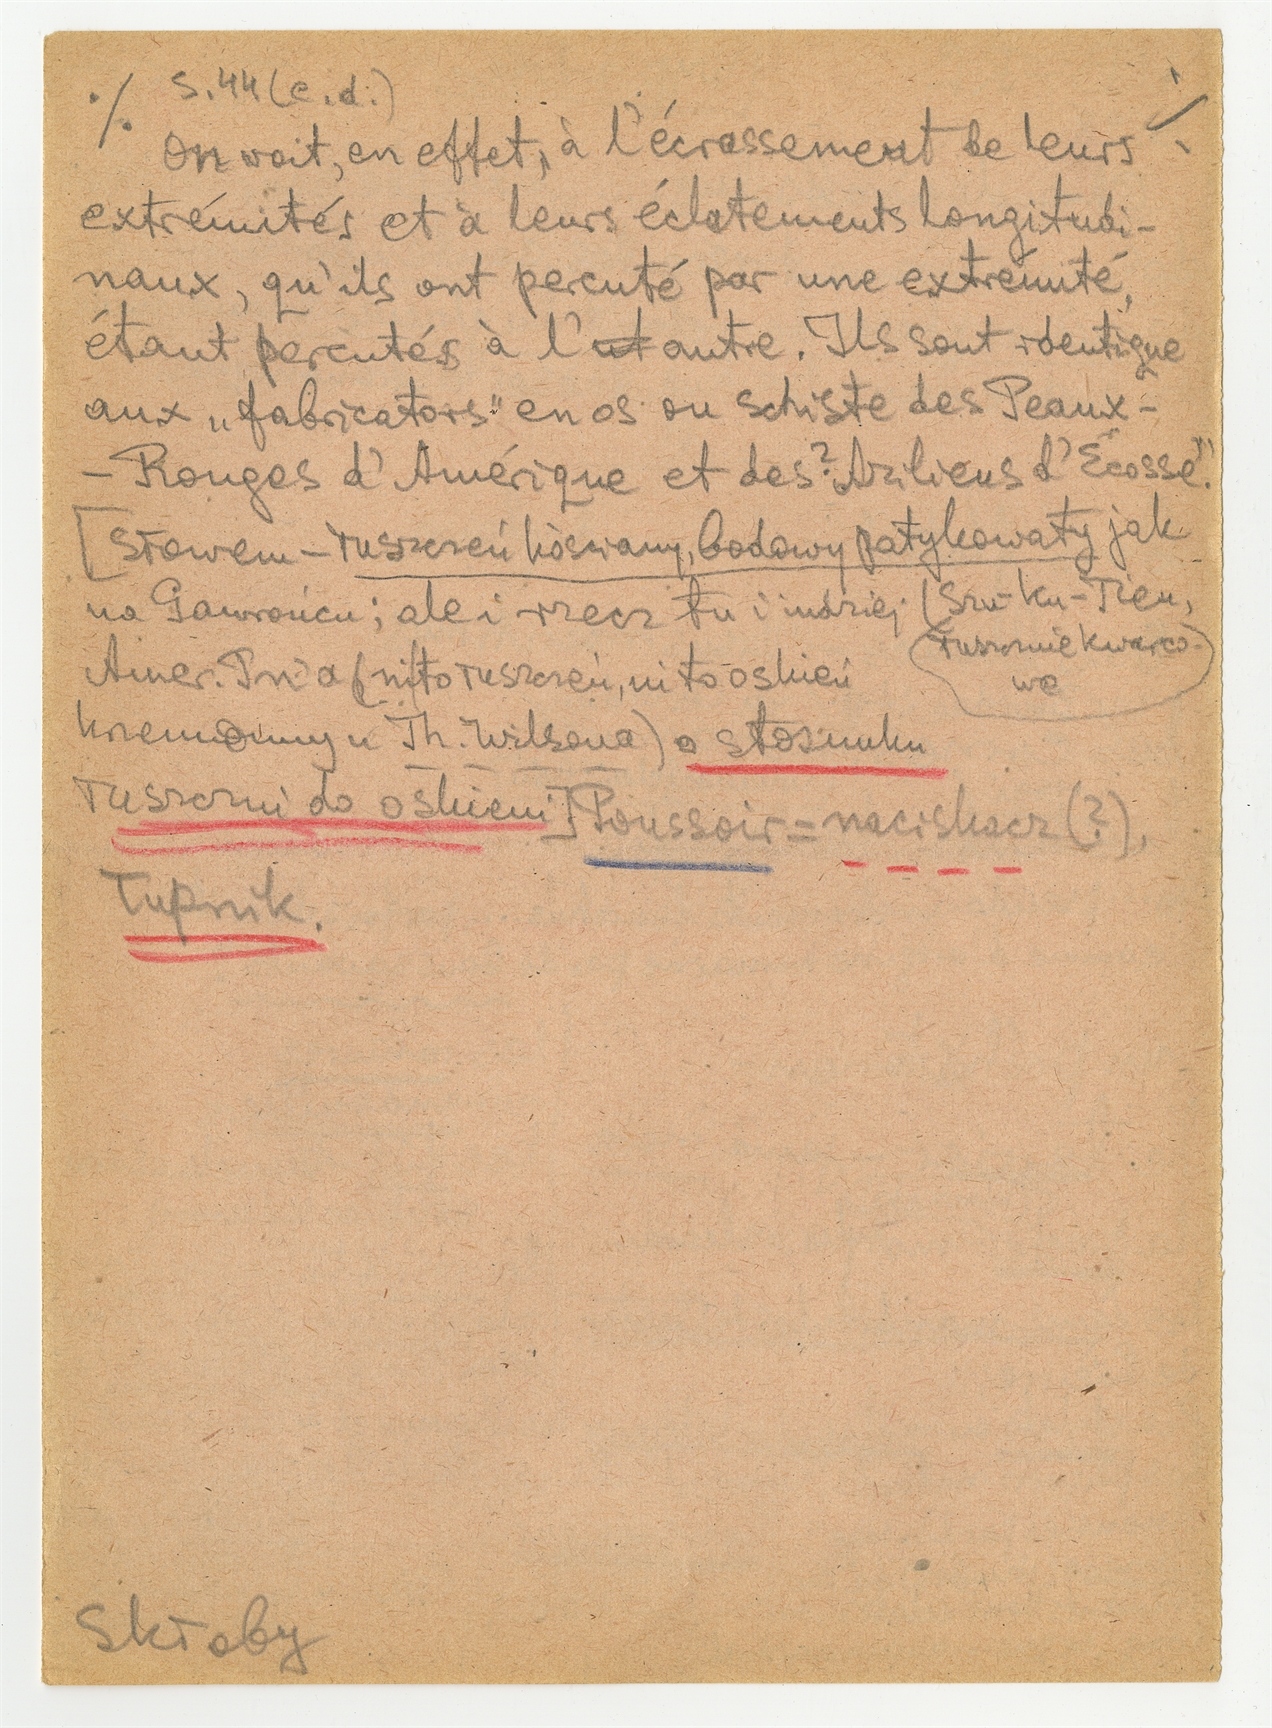 ./. S.44 (c.d.) ./.
On voit, en effet, à l'écrassement de leurs
extrémités et à leurs éclatements longitudi-
naux, qu'ils ont percuté par une extrémité,
étant percutés à l'autre. Ils sont identique
aux „fabricators" en os ou schiste des Peaux-
-Rouges d'Amérique et des ? Aziliens d'Écosse".
[Słowem – łuszczeń kościany, budowy patykowaty jak
na Gawrońcu; ale i rzecz tu i indziej (Szu-Ku-Tien,
łusznie kwarco-
we
Amer. Płn. a (ni to łuszczeń, ni to oskień
krzemienny u Th. Wilsona) o stosunku
łuszczni do oskieni] Poussoir = naciskacz (?),
Łupnik.
Skłaby